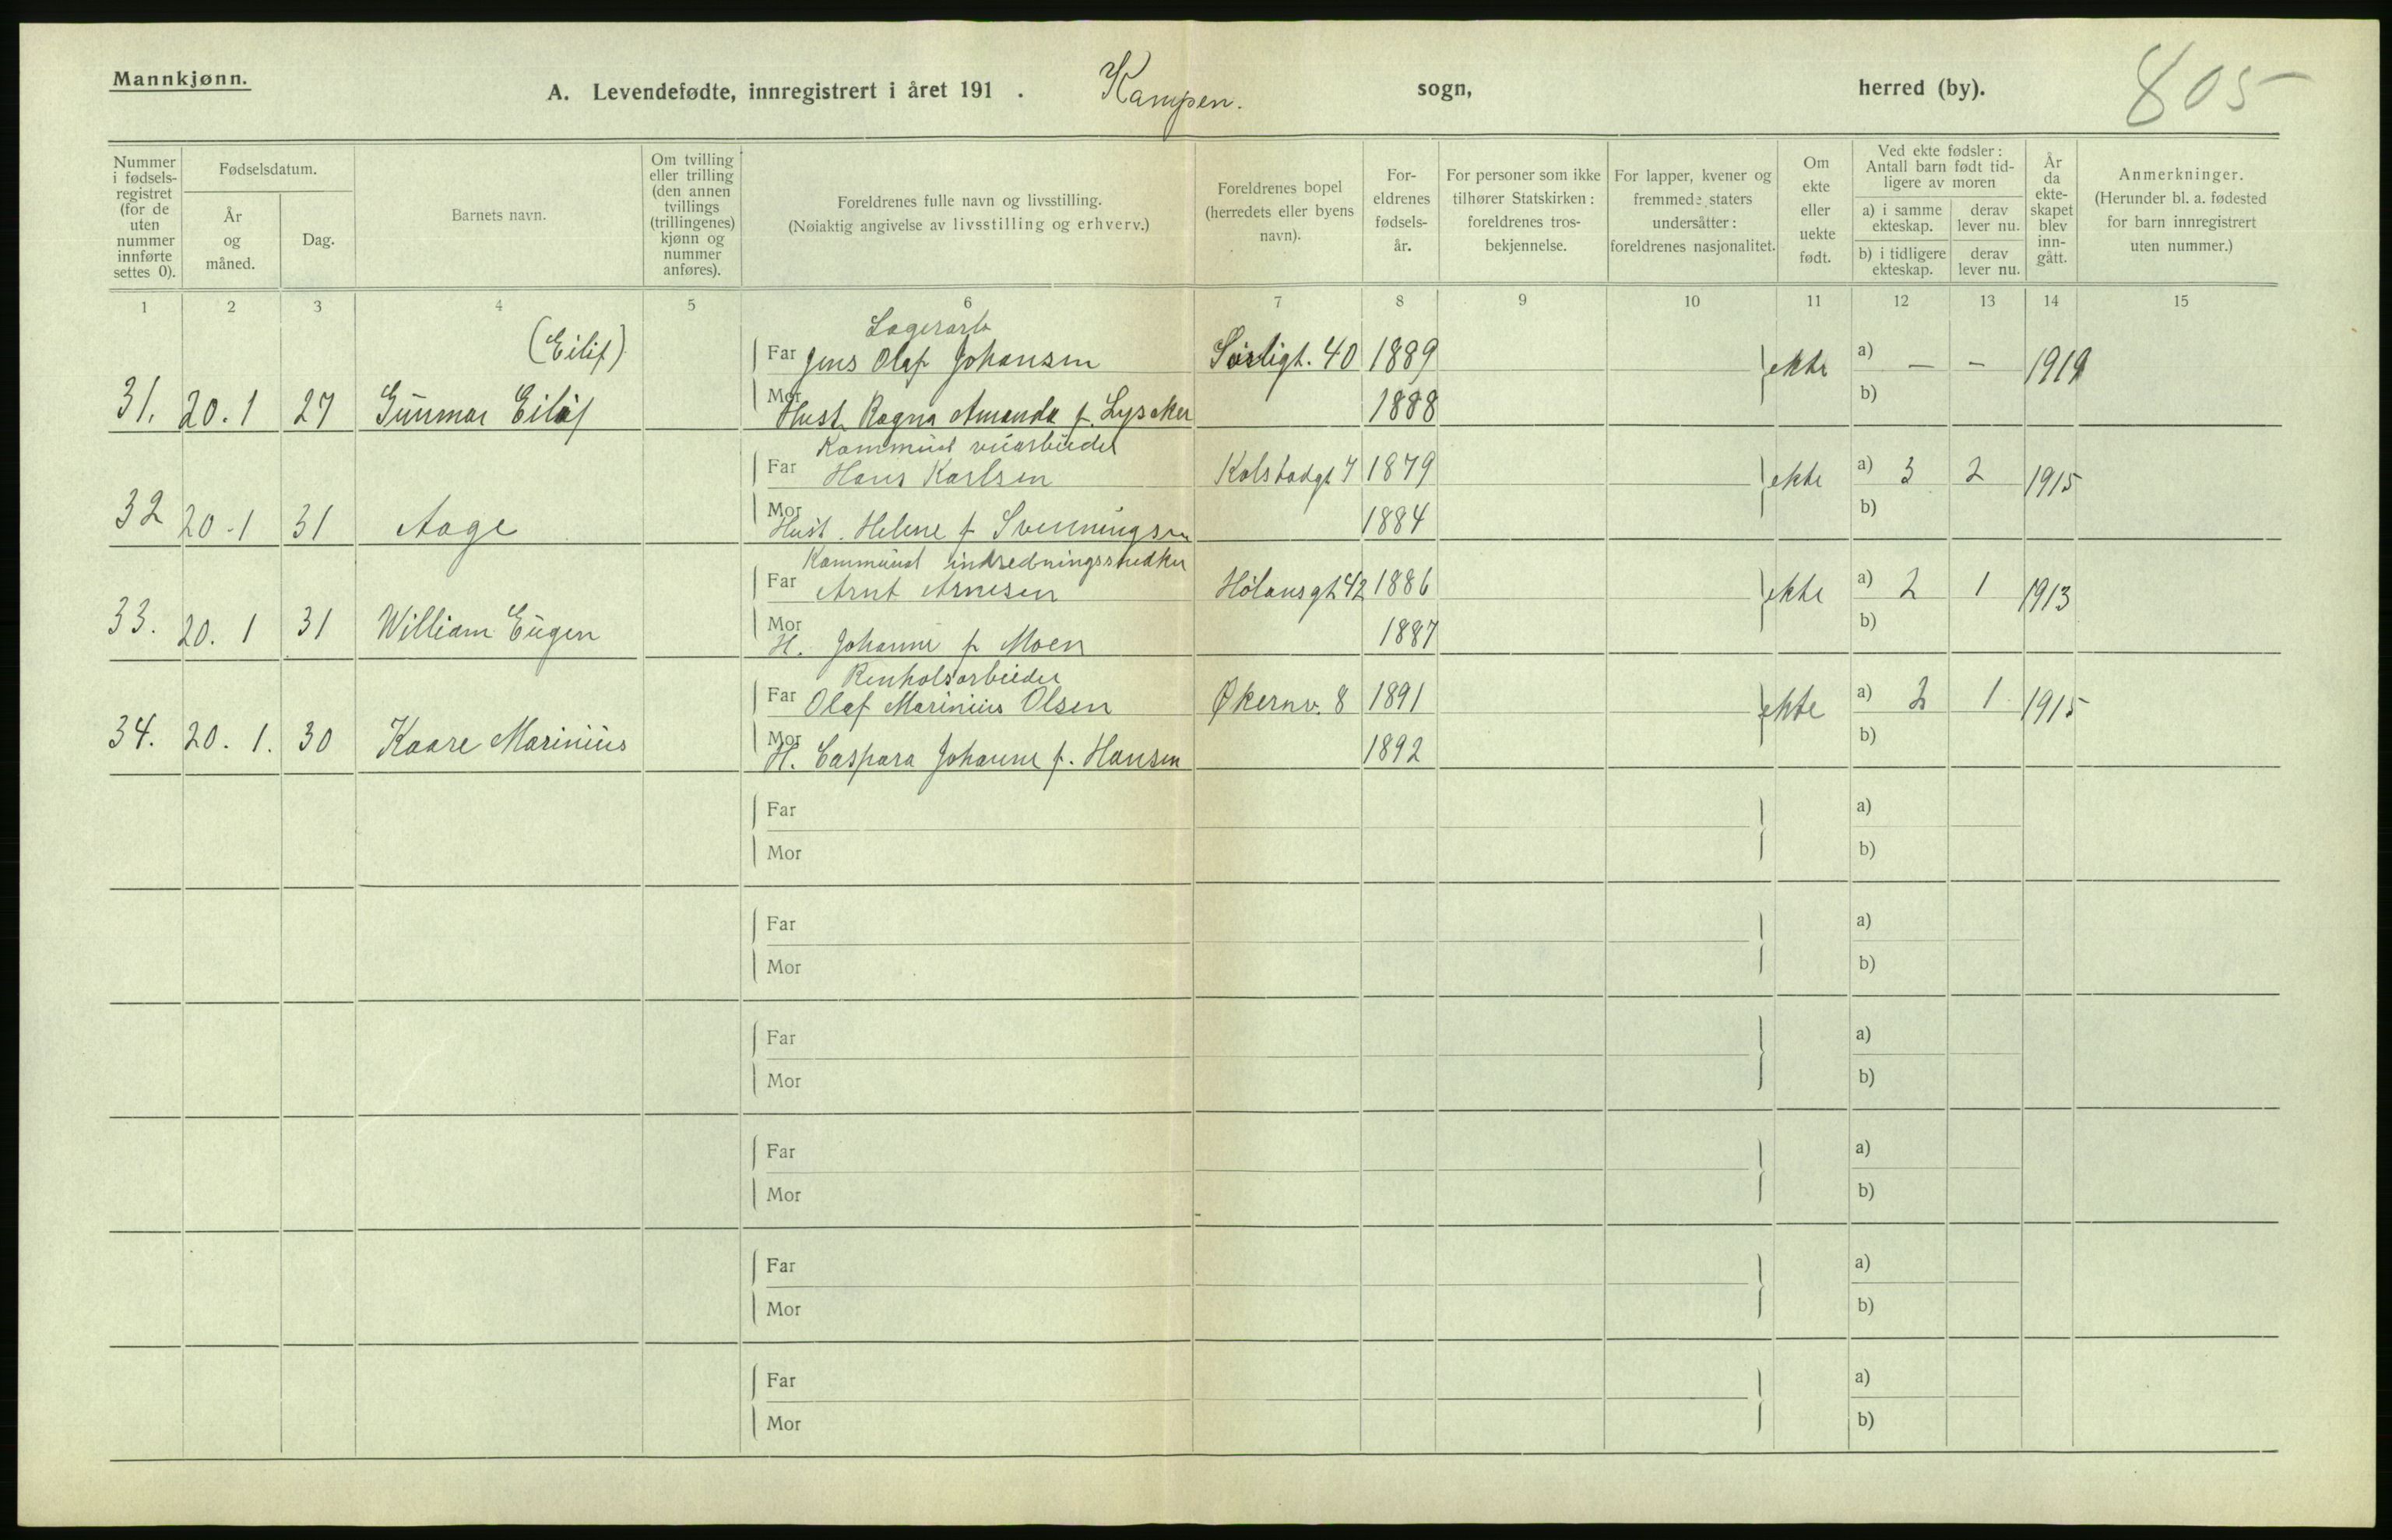 Mannkjønn.
A. Levendefødte, innregistrert i året 191 . Kampen. sogn, herred (by). 805
Nummer i fødsels-registret (for de uten nummer innførte settes 0).
Fødselsdatum.
År og måned.
Dag.
Barnets navn.
Om tvilling eller trilling (den annen tvillings (trillingenes) kjønn og nummer anføres).
Foreldrenes fulle navn og livsstilling.
(Nøiaktig angivelse av livsstilling og erhverv.)
Foreldrenes bopel (herredets eller byens navn).
For-eldrenes fødsels-år.
For personer som ikke tilhører Statskirken: foreldrenes tros-bekjennelse.
For lapper, kvener og fremmede staters undersåtter: foreldrenes nasjonalitet.
Om ekte eller uekte født.
Ved ekte fødsler: Antall barn født tid-ligere av moren
a) i samme ekteskap.
derav lever nu.
b) i tidligere ekteskap.
derav lever nu.
År da ekte-skapet blev inn-gått.
Anmerkninger.
(Herunder bl. a. fødested for barn innregistrert uten nummer.)
1 2 3 4 5 6 7 8 9 10 11 12 13 14 15
(Eilif) Lagerarb
Far Jens Olaf Johansen Sørligt. 40 1889 ekte a) — — 1919
31. 20.1 27 Gunnar Eilif Mor Hust. Ragna Amanda f. Lysaker 1888 b)
Far Hans Karlsen Kolstadgt 7 1879 ekte a) 3 2 1915
32 20-1 31 Aage Mor Hust. Helene f Svenningsen 1884 b)
Kommunal indredningssnedker
Far Arnt Arnesen Hølansgt 42 1886 ekte a) 2 1 1913
33. 20. 1 31 William Eugen Mor H. Johanne f Moen 1887 b)
Renholsarbeider
Far Olaf Marinius Olsen Økernv. 8 1891 ekte a) 2 1 1915
34. 20. 1. 30 Kaare Marinius Mor H. Caspara Johanne f. Hansen 1892 b)
Far a)
Mor b)
Far a)
Mor b)
Far a)
Mor b)
Far a)
Mor b)
Far a)
Mor b)
Far a)
Mor b)